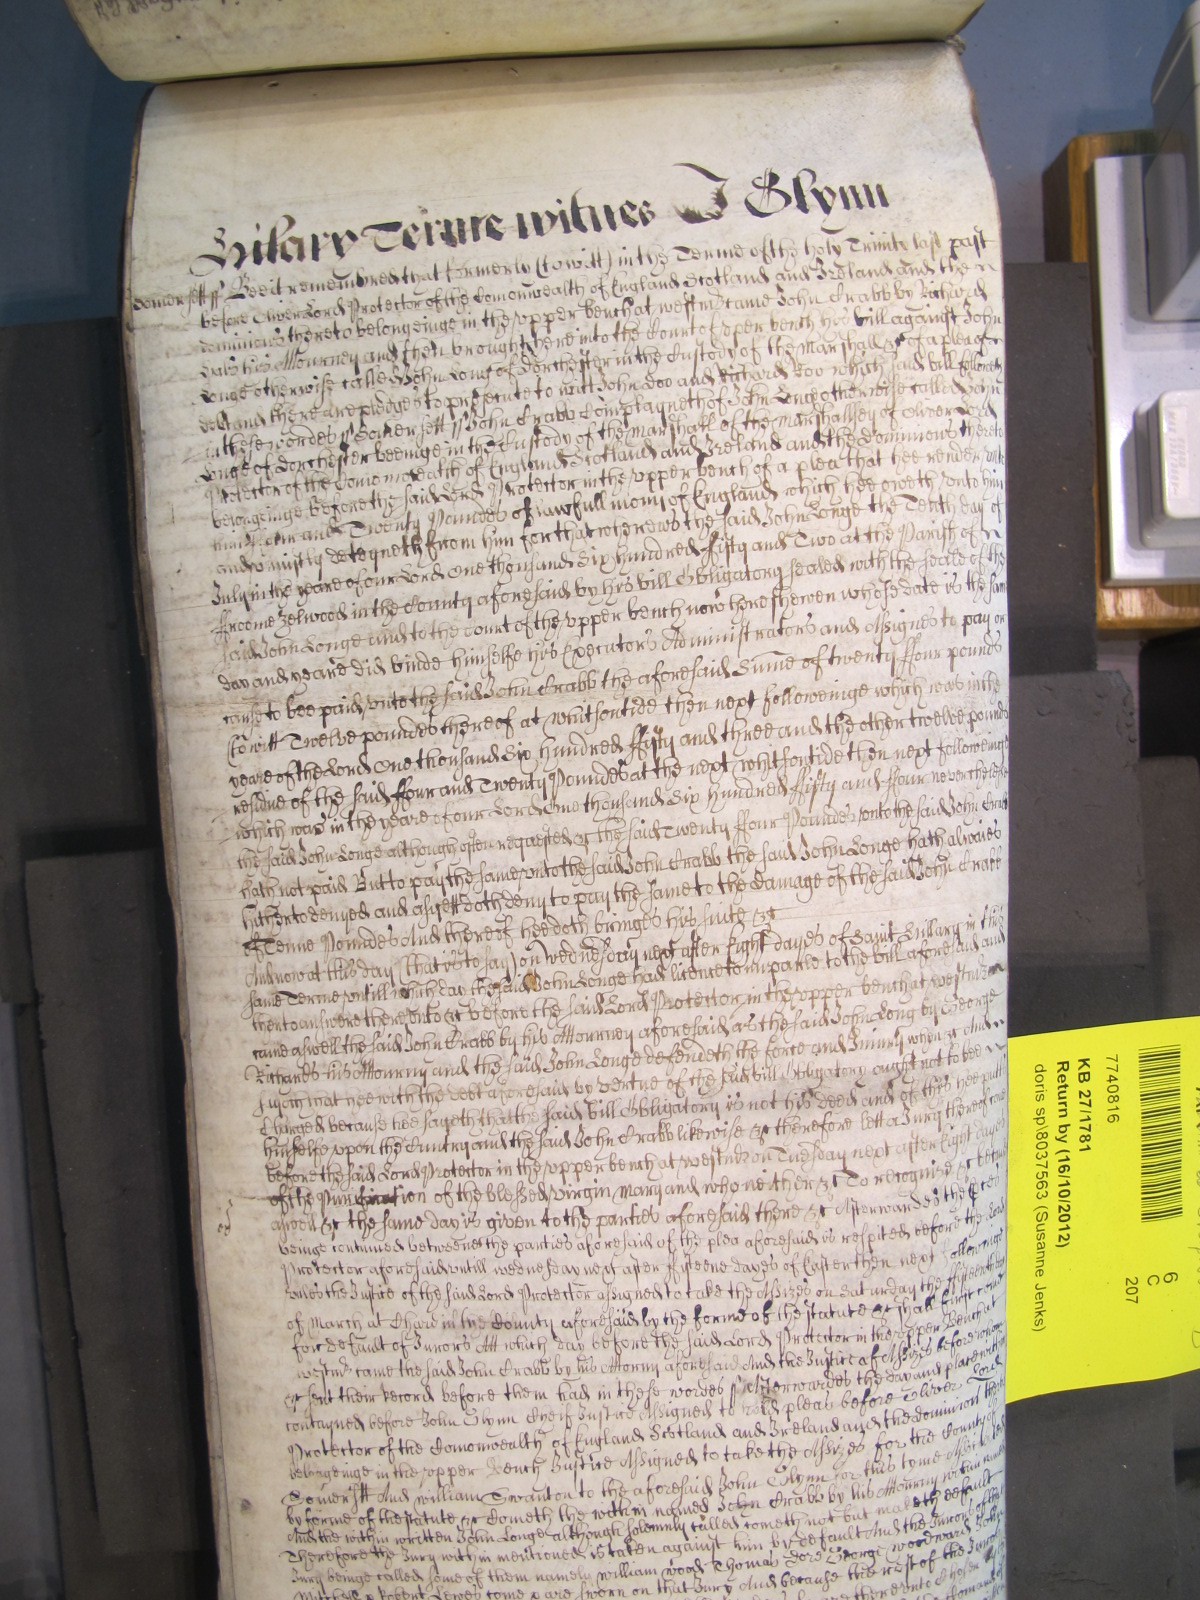 Hilary Terme witnes J Glynn
Somersett ss Bee it remembred that formerly (to witt) in the Terme of the holy Trinite last past
before Oliver Lord Protector of the Comonwealth of England Scotland and Ireland and the
dominions thereto belongeinge in the upper bench at westm came John Crabb by Richard
his Attourney and then brought here into the Court of upper bench his bill against John
Longe otherwise called John Long of Dorchester in the Custody of the Marshall &c of a plea of
debt and there are pledges to prosecute to witt John Doo and Richard Roo which said bill followeth
in these wordes ss Somersett ss John Crabb Complayneth of John Longe otherwise called John
Longe of Dorchester beeinge in the Custody of the Marshall of the Marshallsey of Oliver Lord
Protector of the Comonwealth of England Scotland and Ireland and the dominions thereto
belongeinge before the said Lord Protector in the upper bench of a plea that hee render unto
him ffour and Twenty Poundes of lawfull mony of England which hee oweth unto him
and uniustly deteyneth from him for that whereas the said John Longe the Tenth day of
July in the yeare of our Lord One thousand Six hundred ffifty and Two at the Parish of
ffroome Zelwood in the County aforesaid by his bill Obligatory sealed with the seale of the
said John Longe and to the Court of the upper bench now here shewen whose date is the same
day and yeare did binde himselfe his Executors Administrators and Assignes to pay or
cause to bee paid unto the said John Crabb the aforesaid Sume of twenty ffour pounds
(to witt Twelve poundes thereof at whitsontide then next followeinge which was in the
yeare of the Lord One thousand Six hundred ffifty and three and the other twelve pounds
residue of the said ffour and Twenty Poundes at the next whitsontide then next followeinge
which was in the yeare of our Lord One thousand Six hundred ffifty and ffour nevertheless
the said John Longe although often requested &c the said Twenty ffour Poundes unto the said John Crabb
hath not paid But to pay the same unto the said John Crabb the said John Longe hath alwaies
hitherto denyed and as yett doth deny to pay the same to the damage of the said John Crabb
of Tenne Poundes And thereof hee doth bringe his suite &c
And now at this day (that is to say) on wednesday next after Eight dayes of Saint Hillary in this
same Terme untill which day the said John Longe had licence to imparle to the bill aforesaid and
then to answere thereunto &c before the said Lord Protector in the upper bench at westm
came aswell the said John Crabb by his Attourney aforesaid as the said John Long by George
Richards his Attourny and the said John Longe defendeth the force and Iniury when &c And
saith that hee with the debt aforesaid by vertue of the said bill Obligatory ought not to bee
Charged because hee sayeth that the said bill Obligatory is not his deed and of this hee putts
himselfe upon the Cuntry and the said John Crabb likewise &c therefore lett a Jury thereof come
before the said Lord Protector in the upper bench at westm on Tuesday next after Eight dayes
of the Purification of the blessed virgin Mary and who neither &c To recognise &c because
aswell &c the same day is given to the parties aforesaid there &c Afterwardes the
beinge continued betweene the parties aforesaid of the plea aforesaid is respited before the Lord
Protector aforesaid untill wednesday next after fifteene dayes of Easter then next followeinge
unles the Justice of the said Lord Protector assigned to take the Assizes on Saturday the fifteenth day
of March at Chard in the County aforesaid by the forme of the statute &c shall first come
for default of Jurors Att which day before the said Lord Protector in the upper Bench at
westm came the said John Crabb by his Attorny aforesaid And the Justice of Assizes before whome
&c sent their Record before them had in these wordes ss Afterwardes the day and place within
contayned before John Glynn Cheif Justice Assigned to hold pleas before Oliver Lord
Protector of the Comonwealth of England Scotland and Ireland and the dominion thereto
belongeinge in the upper Bench Justice Assigned to take the Assizes for the County of
Somersett And William Swanton to the aforesaid John Glynn for this tyme
by forme of the statute &c Cometh the within named John Crabb by his Attourny within
And the within written John Longe although solemnly called cometh not but maketh default
Therefore the Jury within mentioned is taken against him by default And the Jurors of the
Jury beinge called some of them namely William wood Thomas George woodward John
Robert Lewes come & are sworn on that Jury And because the rest of the Jurors
7740816
KB 27/1781
Return by (16/10/2012)
doris sp\8037563 (Susanne Jenks)
6
C
207